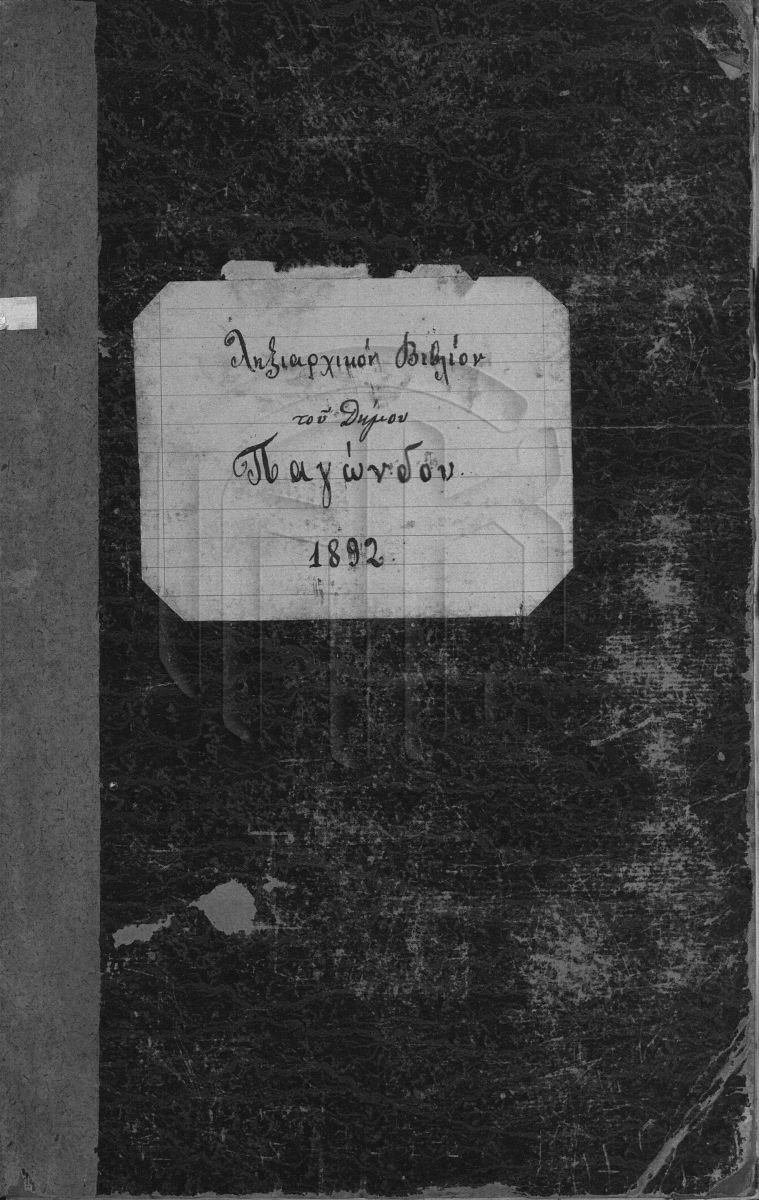 Ληξιαρχικόν Βιβλίον
τοῦ Δήμου
Παγώνδου
1892.